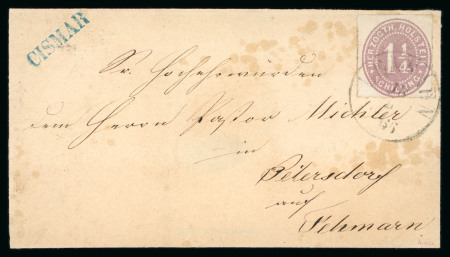 CISMAR
HERZOGTH. HOLSTEIN
1¼
SCHILLING
Sr. Hochehrwürden
dem Herrn Pastor Michler
in
Petersdorf
auf
Fehmarn